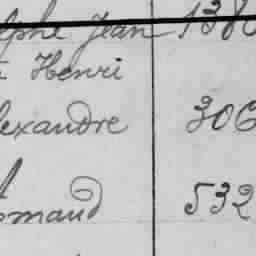 elphe Jean 138
Henri
lexandre 306
rmand 532